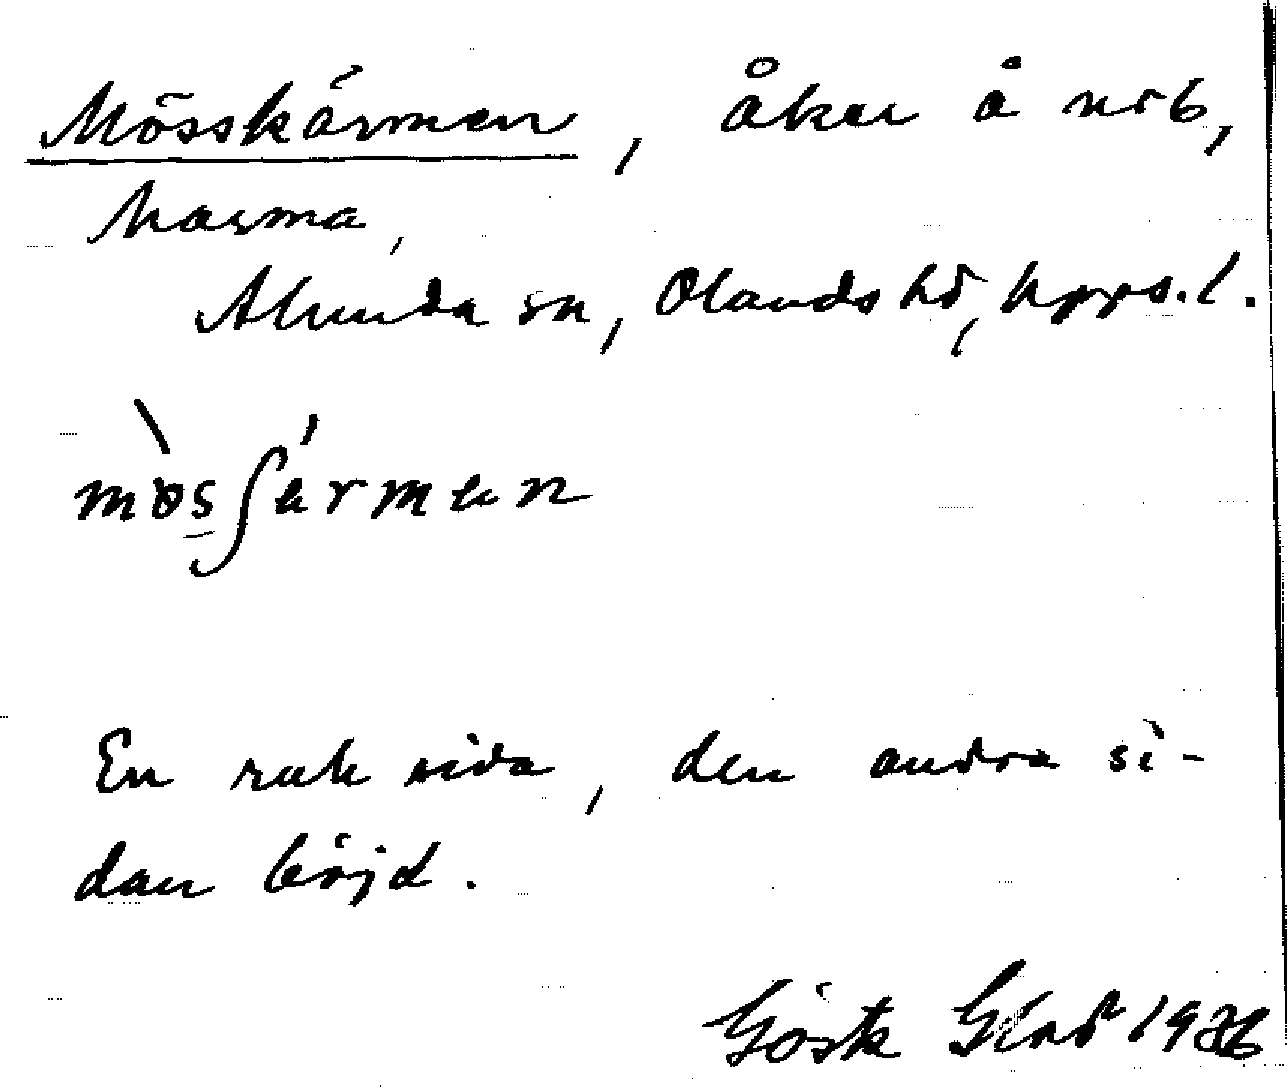 Mösskärmen, åker å nr 6,
Marma,
Alunda sn, Olands hd, Upps. l.
mòsʃármen
En rak sida, den andra si-
dan böjd.
Gösta 19